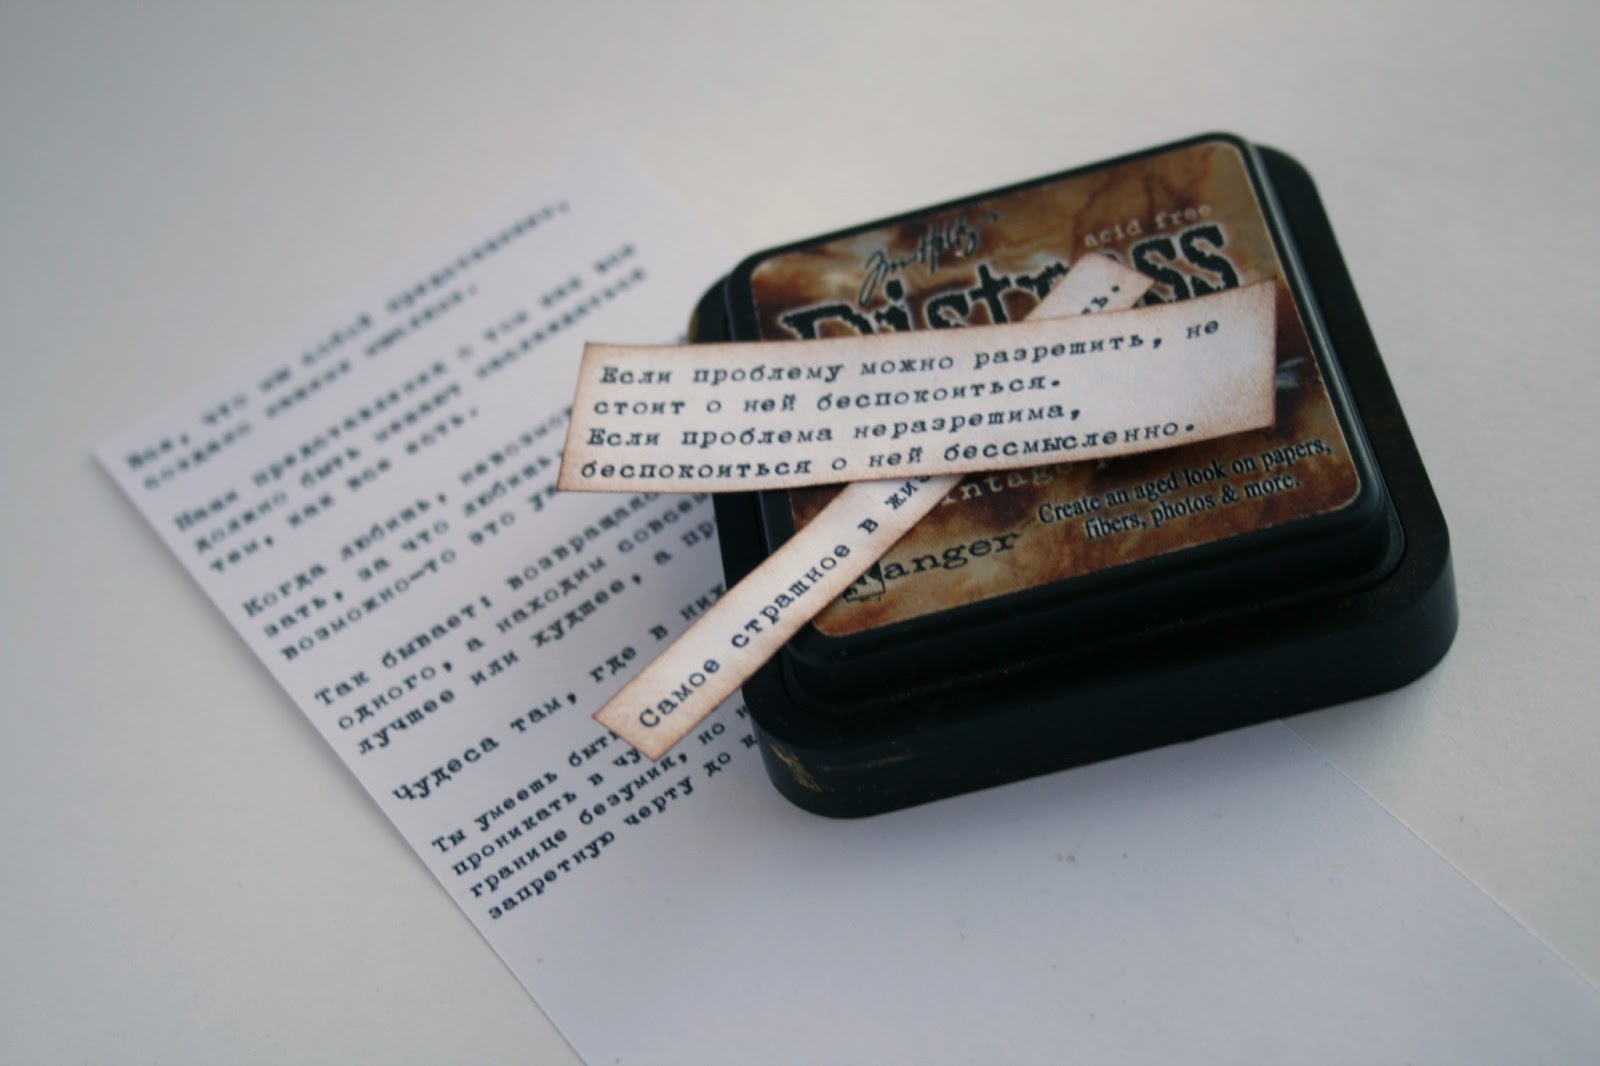 Все, что мы собой представляем,
создано нашими мыслями.
Наши представления о том как все
должно быть мешают наслаждаться
тем, как все есть.
Когда любишь,
зать, за что любишь
возможно-то это
Так бывает: возвращаю
одного, а находим совсе
лучшее или худшее, а пр
Чудеса там, где в них
Ты умеешь быть
проникать в чу
границе безумия, но н
запретную черту до к
Tim Holtz
acid free
Distress
Если проблему можно разрешить, не
стоит о ней беспокоиться.
Если проблема неразрешима,
беспокоиться о ней бессмысленно.
Самое страшное в жи
ь.
intage
Create an aged look on papers,
fibers, photos & more.
Ranger